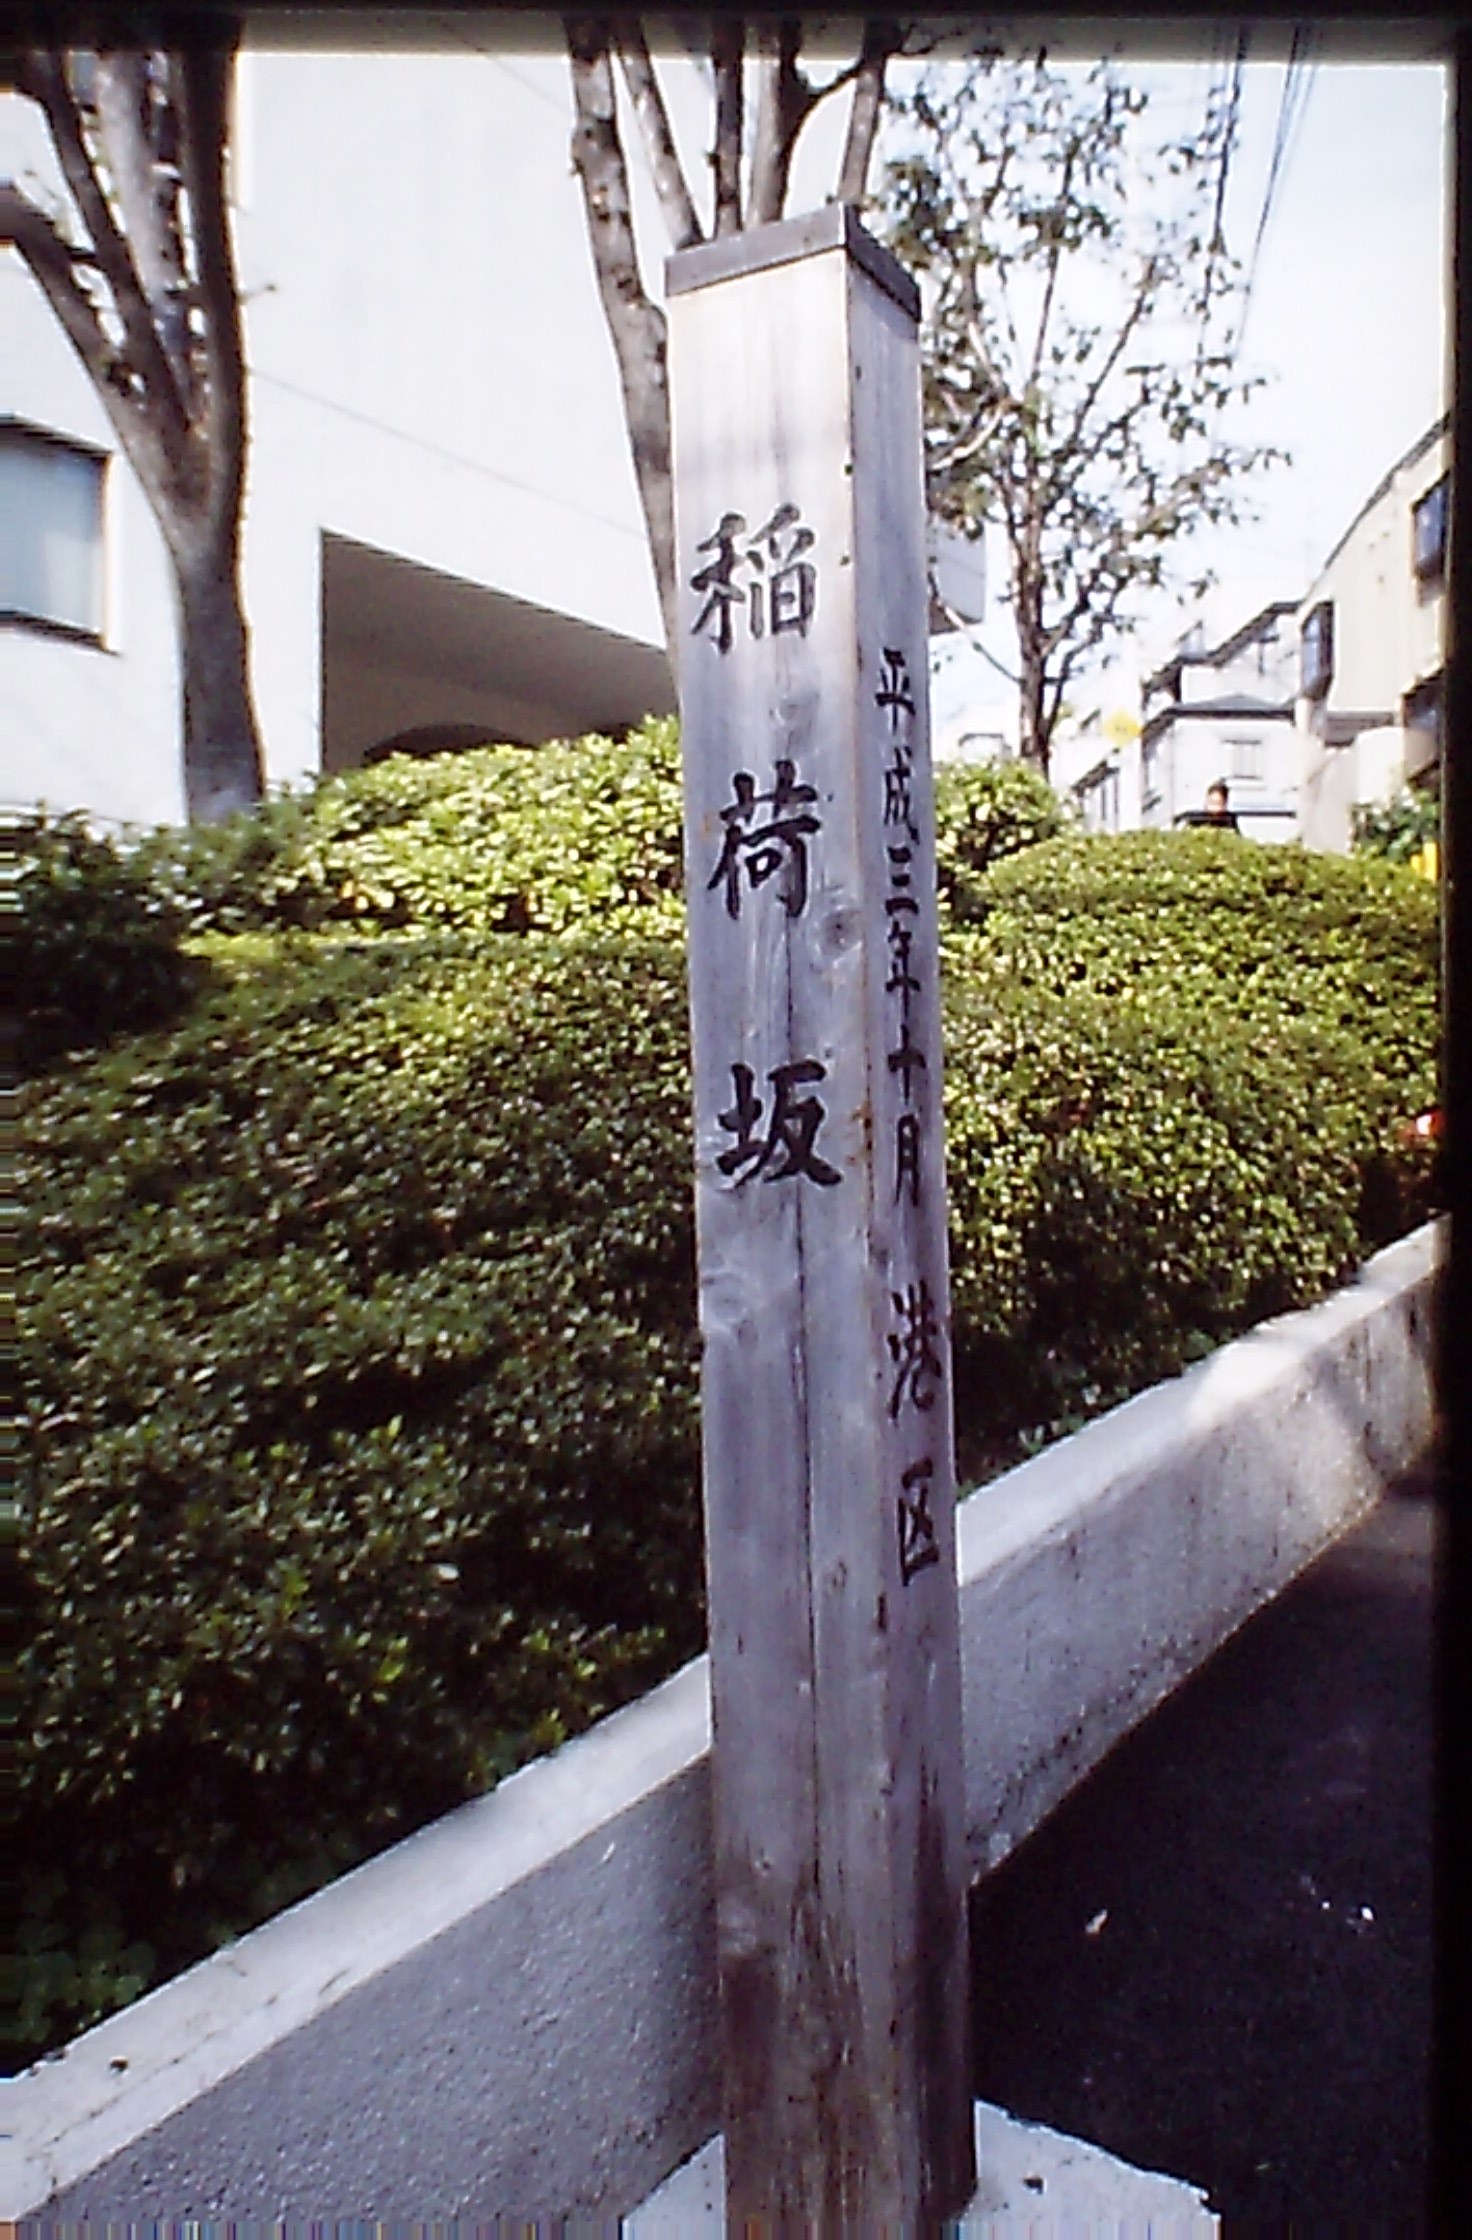 稲荷坂
平成三年十月 港区